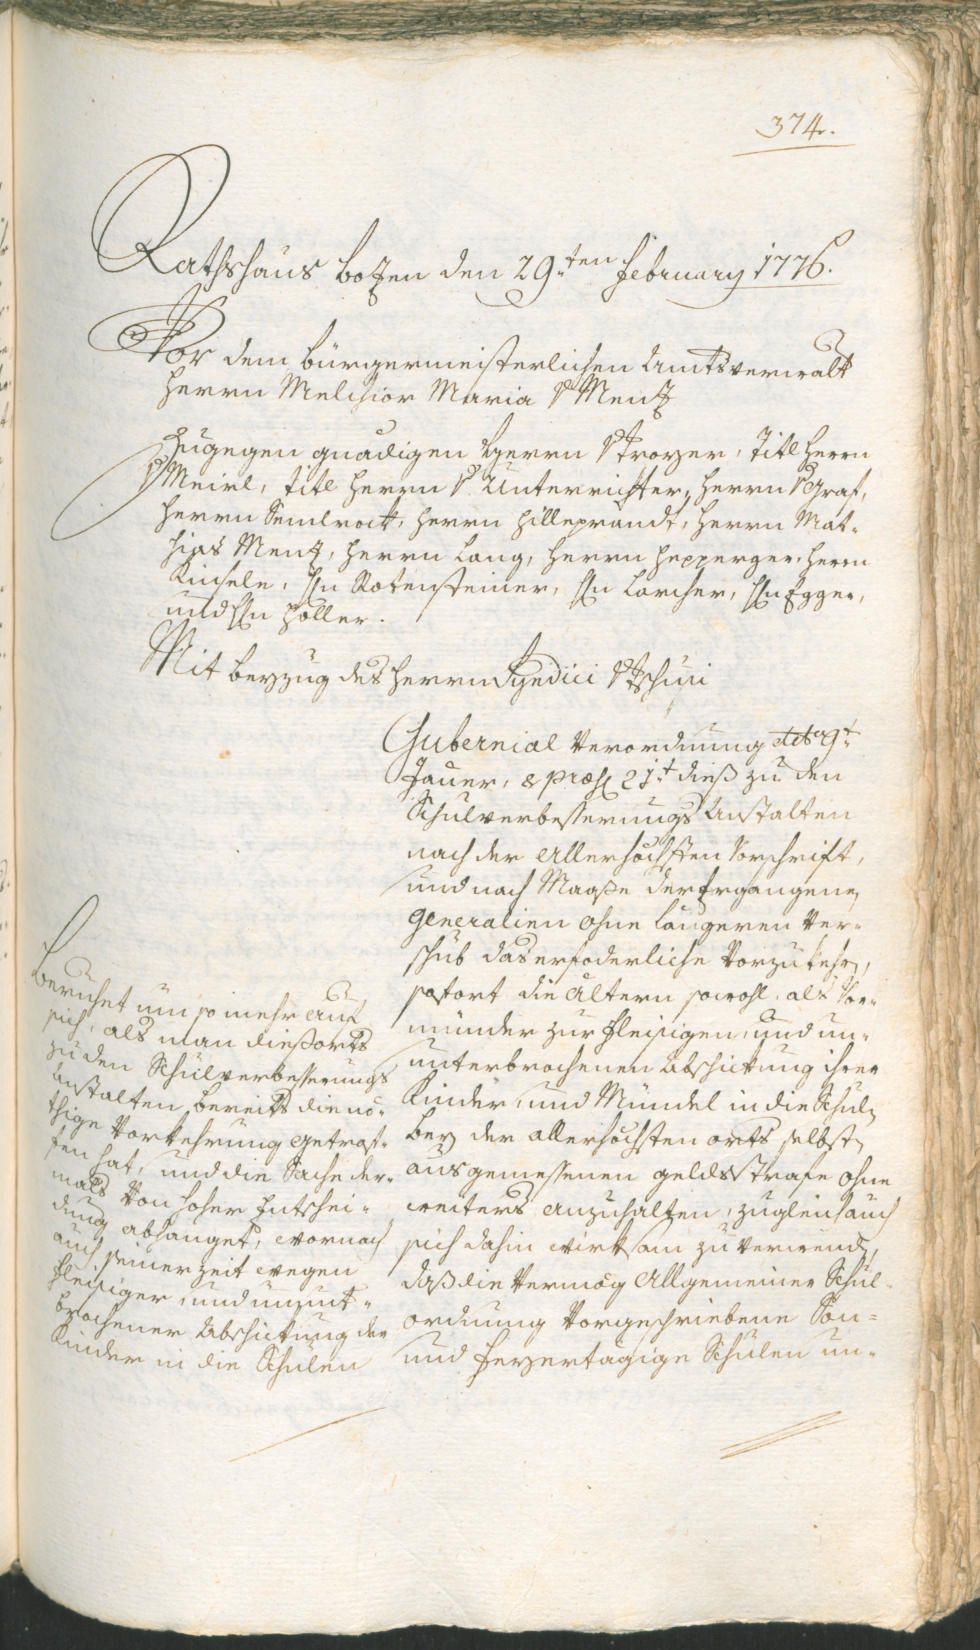 374.
Rathshaus Botzen den 29.ten February 1776.
Vor dem bürgermeisterlichen Amtsverwalt
Herrn Melchior Maria v Mentz
Zugegen gnädigen Herrn v Troyer, Titl Herrn
v Meirl, titl Herrn v Unterrichter, Herrn v Graf,
Herrn Semlrockh, Herrn Hilleprandt, Herrn Mat-
hias Mentz, Herrn Lang, Herrn Hepperger, Herrn
Kinsele, Hn Rotensteiner, Hn Larcher, Hn Egger,
und Hn Holler.
Mit beyzug des Herrn Syndici v Tschiui
Gubernial Verordnung ddto 9t.
Jäner, & præs. 21.t dieß zu den
Schulverbesserungs Anstalten
nach der Allerhöchsten Vorschrift,
und nach Maaße der Ergangenen
Generalien ohne längeren Ver-
schub das erfoderliche Vorzukehren,
sofort die Ältern sowohl, als Vor-
münder zur fleisigen, und un-
unterbrochenen Abschickung ihrer
Kinder, und Mündel in die Schulen
bey der allerhöchsten orts selbsten
ausgemessenen geldsstrafe ohne
weiters anzuhalten, zugleich auch
sich dahin wirksam zu verwenden,
daß die Vermög Allgemeiner Schul-
ordnung Vorgeschriebene Son=
und Feyertägige Schulen un-
beruhet um so mehr auf
sich, als man dießorts
zu den Schulverbesserungs
Anstalten bereits die nö-
thige Vorkehrung getrof-
fen hat, und die Sache der-
mals Von hoher Entschei-
dung abhanget, wornach
auch seiner zeit wegen
fleisiger, und ununt-
brochener Abschickung der
Kinder in die Schulen